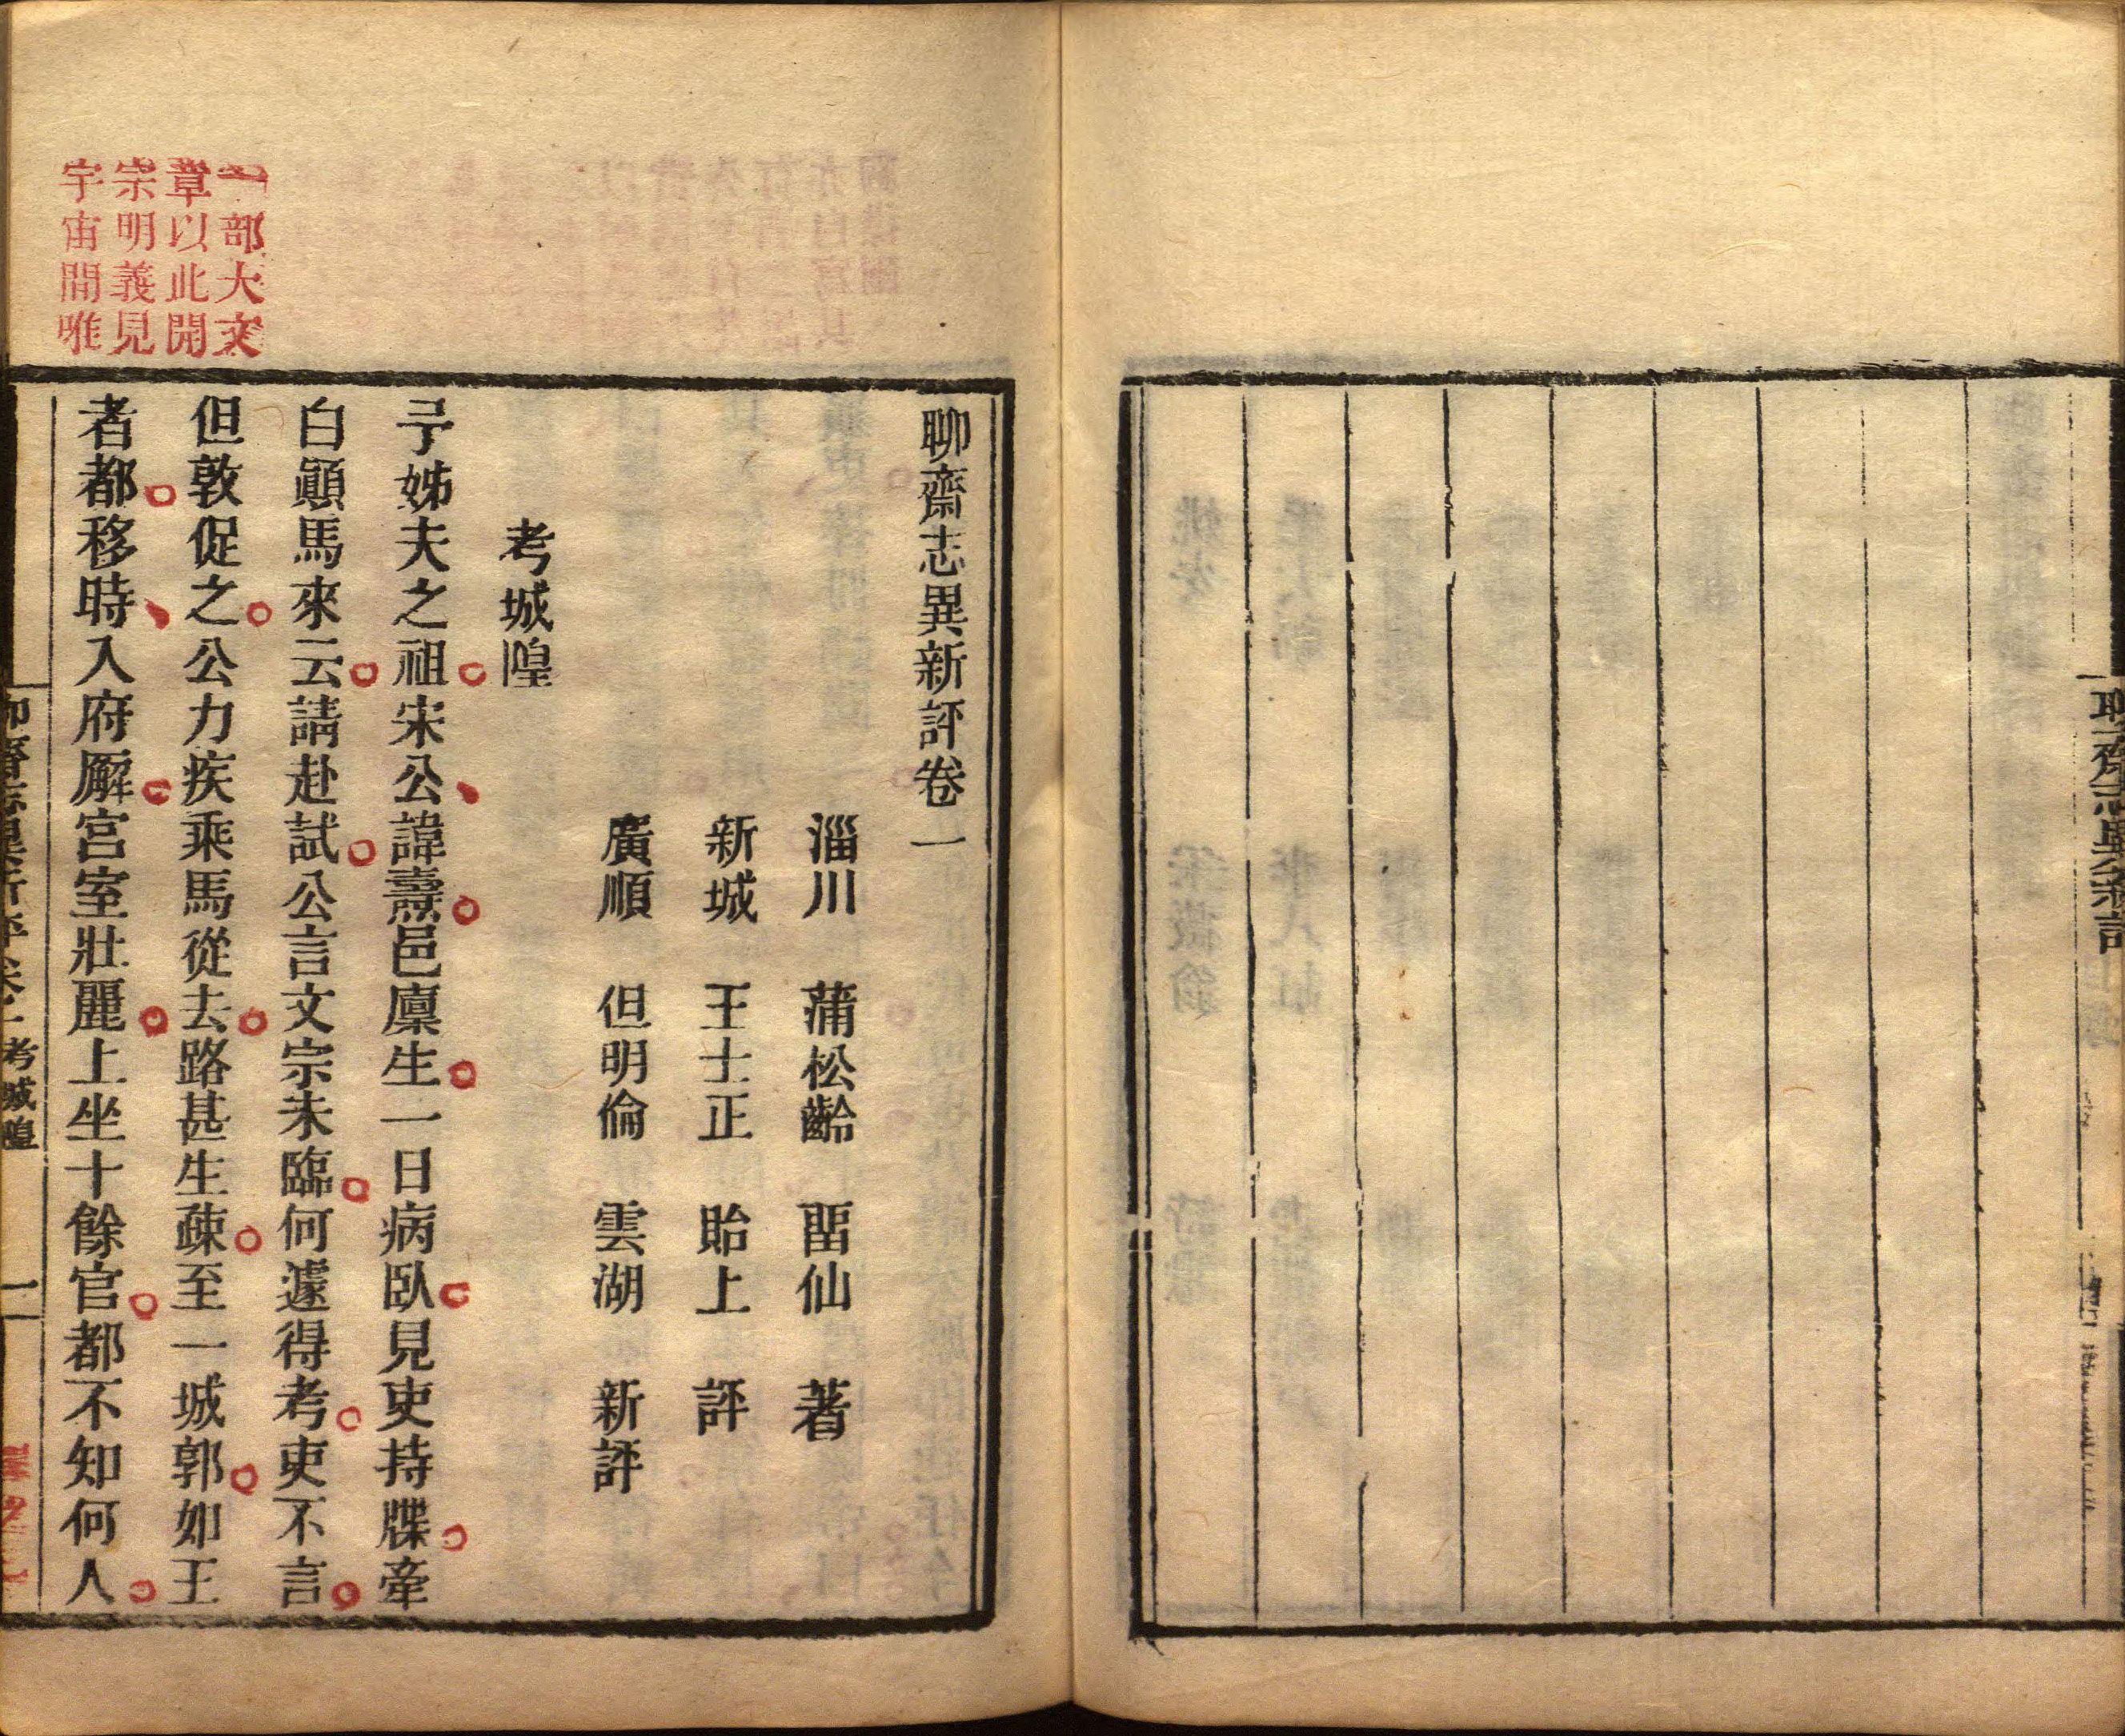 聊齋志異新評
一部大文
章以此開
宗明義見
宇宙間唯
聊齋志異新評卷一
淄川 蒲松齡 畱仙 著
新城 王士正 貽上 評
廣順 但明倫 雲湖 新評
考城隍
予姊夫之祖宋公諱燾邑廩生一日病臥見吏持牒牽
白顚馬來云請赴試公言文宗未臨何遽得考吏不言
但敦促之公力疾乘馬從去路甚生疎至一城郭如王
者都移時入府廨宮室壯麗上坐十餘官都不知何人
聊齋志異新評 卷一 考城隍 一